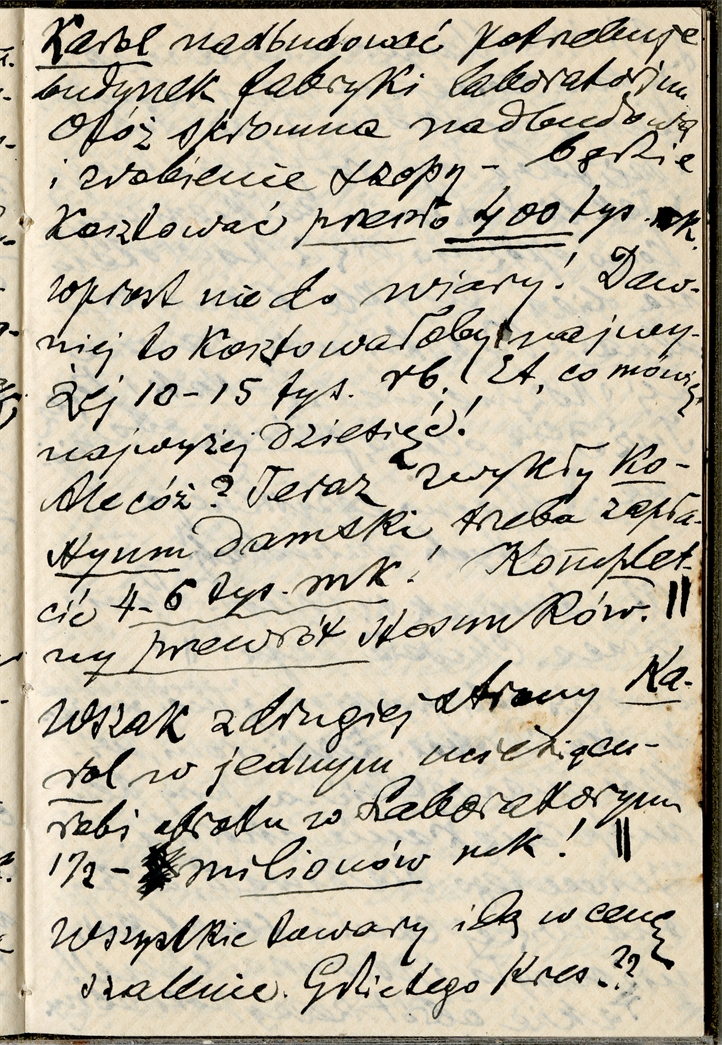 Karol nadbudować potrebuje
budynek fabryki laboratorjum
Otóż skromna nadbudowa
i zrobienie szopy – będzie
kosztować przeszło 400 tys. mk.
wprost nie do wiary! Daw-
niej to kosztowałoby najwy-
żej 10-15 tys. rb. Et, co mówię
najwyżej dziesięć!
Ale cóż? Teraz zwykły ko-
styum damski trzeba zapła-
cić 4-6 tys. mk! Komplet-
ny przewrót stosunków. ||
Wszak z drugiej strony Ka-
rol w jednym miesiącu
robi obrotu w Laboratoryum
1½ - milionów mk! ||
Wszystkie towary idą w cenę
szalenie. Gdzie tego kres.??